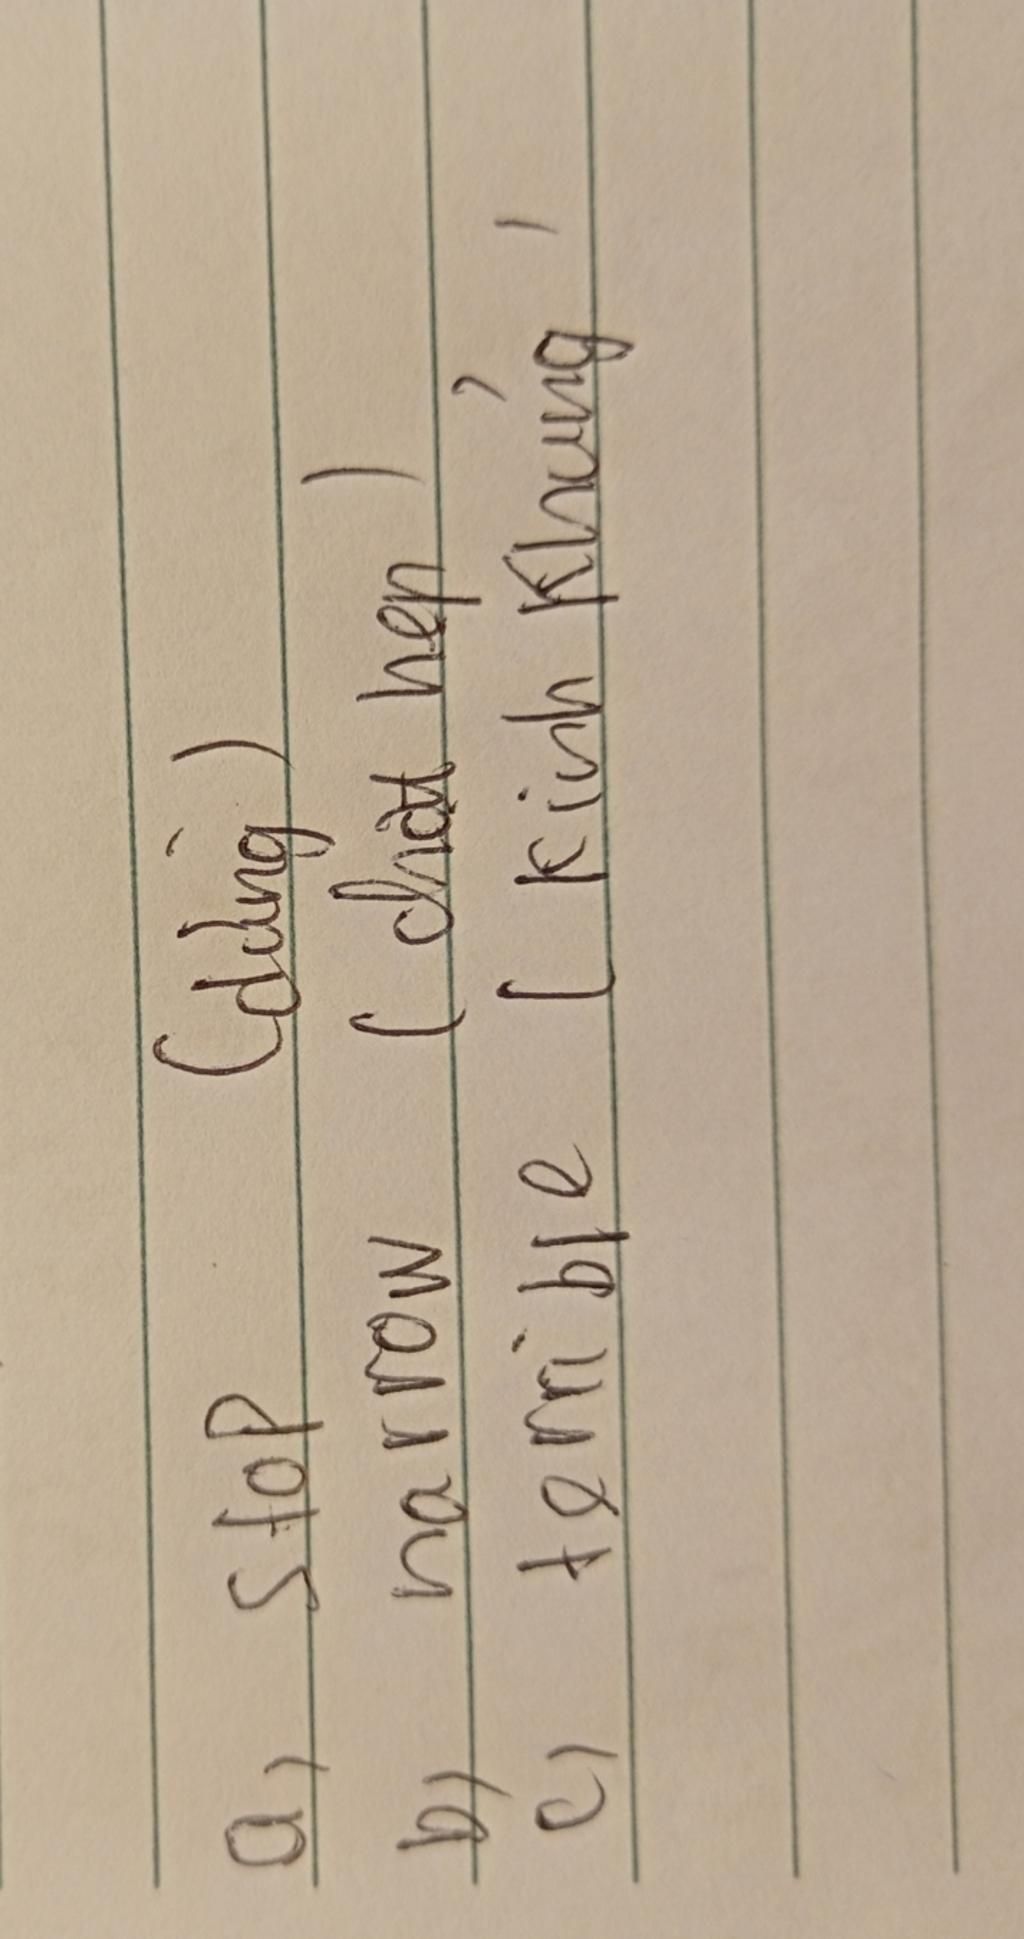 a, stop (dừng)
b, narrow (chật hẹp)
c, terrible (kinh khủng)